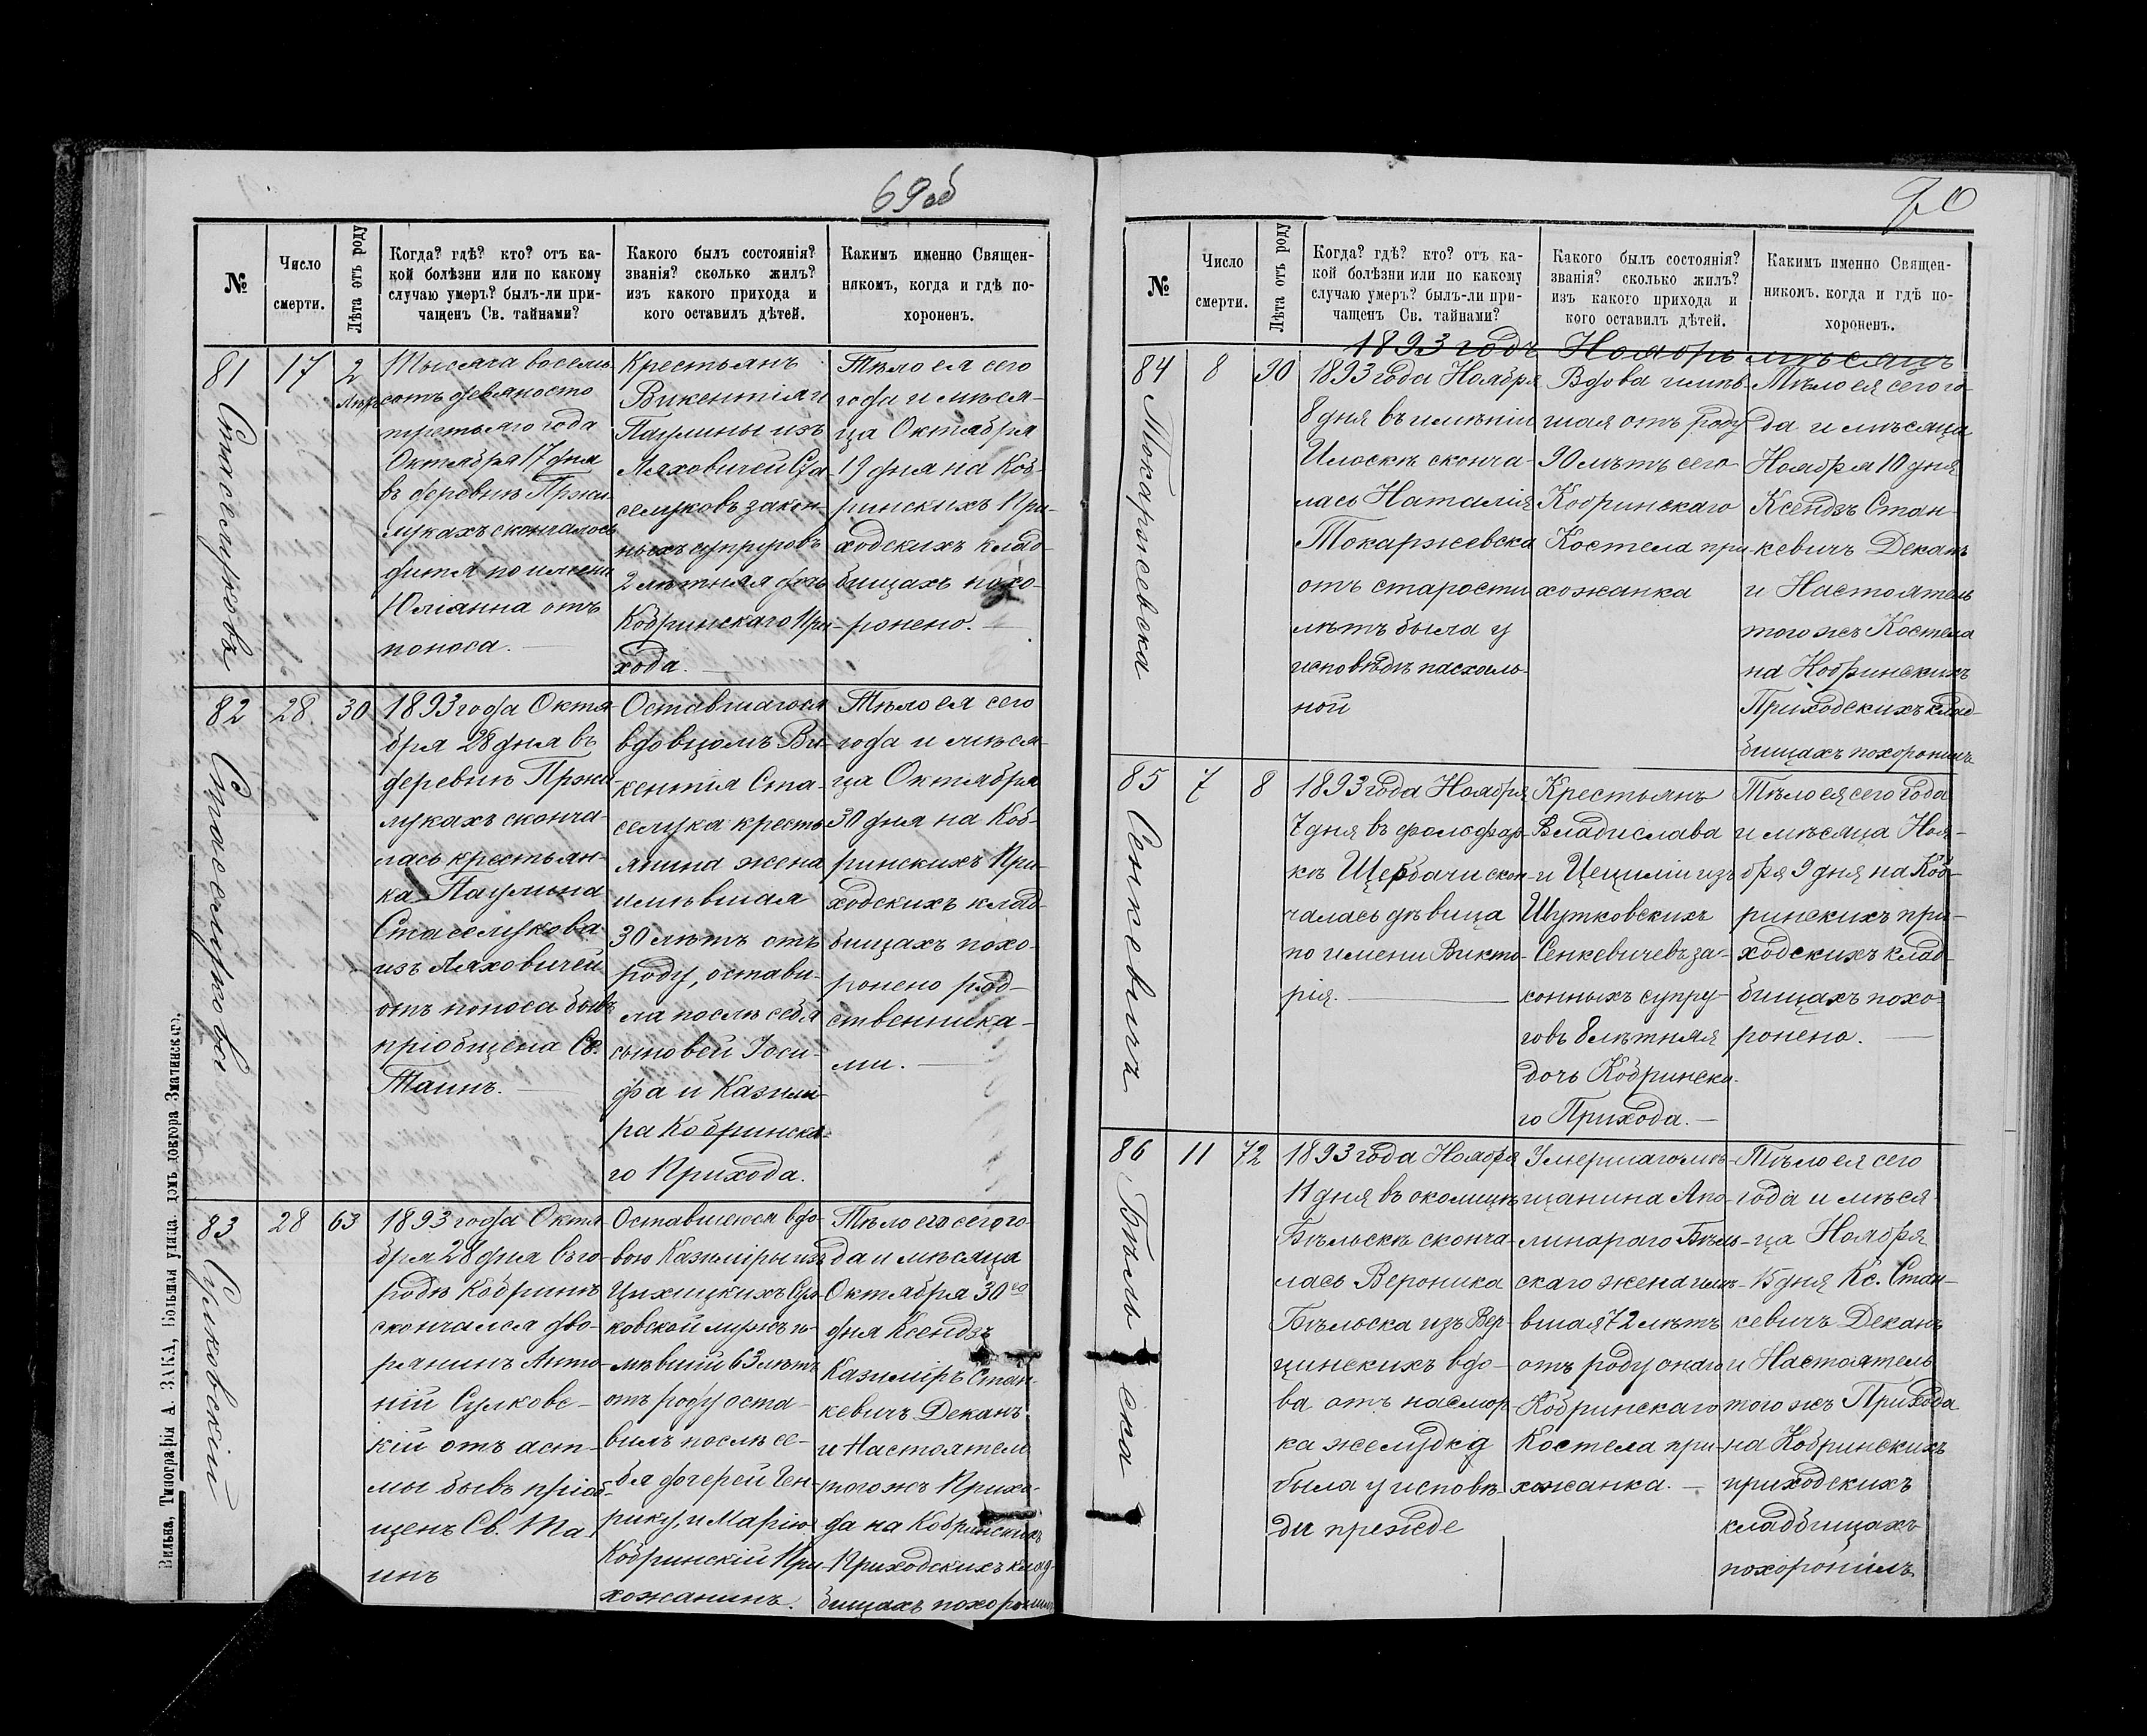 69об
№
Число
смерти.
Лѣта отъ роду
Когда? гдѣ? кто? отъ ка-
кой болѣзни или по какому
случаю умеръ? былъ-ли при-
чащенъ Св. тайнами?
Какого былъ состоянія?
званія? сколько жилъ?
изъ какого прихода и
кого оставилъ дѣтей.
Какимъ именно Священ-
никомъ, когда и гдѣ по-
хороненъ.
81
17
2
Тысяча восемь
сотъ девяносто
третьяго года
Октября 17 дня
въ деревнѣ Пржи
лукахъ скончалось
дитя по имени
Юліанна отъ
поноса.
Крестьянъ
Викентія и
Паулины изъ
Ляховичей Ста
селуковъ закон-
ныхъ супруговъ
2 лѣтняя дочь
Кобринскаго При-
хода.
Тѣло ея сего
года и мѣся-
ца Октября
19 дня на Коб-
ринскихъ При-
ходскихъ клад-
бищахъ похо-
ронено.
82
28
30
1893 года Октя
бря 28 дня въ
деревнѣ Пржи
лукахъ сконча-
лась крестьян-
ка Паулина
Стаселукова
изъ Ляховичей
отъ поноса бывъ
пріобщена Св.
Таинъ.
Оставшагося
вдовцомъ Ви-
кентія Ста-
селука кресть
янина жена
имѣвшая
30 лѣтъ отъ
роду, остави-
ла послѣ себя
сыновей Іоси-
фа и Казими-
ра Кобринска-
го Прихода.
Тѣло ея сего
года и мѣся-
ца Октября
30 дня на Коб-
ринскихъ При-
ходскихъ клад-
бищахъ похо-
ронено род-
ственника-
ми.
83
Сулковскій
28
63
1893 года Октя
бря 28 дня въ го-
родѣ Кобринѣ
скончался дво-
рянинъ Анто-
ній Сулковс-
кій отъ аст-
мы бывъ пріоб-
щенъ Св. Та-
инъ
Оставшеюся вдо-
вою Казиміры изъ
Цихицкихъ Сул-
ковской мужъ и-
мѣвшій 63 лѣтъ
отъ роду оста-
вилъ послѣ се-
бя дочерей Ген-
рику, и Марію
Кобринскій При-
хожанинъ.
Тѣло его сего го-
да и мѣсяца
Октября 30 го
дня Ксендзъ
Казиміръ Стан-
кевичъ Деканъ
и Настоятель
того жъ Прихо-
да на Кобринскихъ
Приходскихъ клад-
бищахъ похоронилъ
Вильна, Типографія А. ЗАКА, Большая улица, домъ доктора Змачинскаго.
70
№
Число
смерти.
Лѣта отъ роду
Когда? гдѣ? кто? отъ ка-
кой болѣзни или по какому
случаю умеръ? былъ-ли при-
чащенъ Св. тайнами?
Какого былъ состоянія?
званія? сколько жилъ?
изъ какого прихода и
кого оставилъ дѣтей.
Какимъ именно Священ-
никомъ. когда и гдѣ по-
хороненъ.
1893 годъ Ноябрь мѣсяцъ
84
Токаржевска
8
90
1893 года Ноября
8 дня въ имѣніи
Илоскѣ сконча-
лась Наталія
Токаржевска
отъ старости
лѣтъ была у
исповѣдѣ пасхаль-
ной
Вдова имѣв-
шая отъ роду
90 лѣтъ сего
Кобринскаго
Костела при-
хожанка
Тѣло ея сего го-
да и мѣсяца
Ноября 10 дня
Ксендзъ Стан-
кевичъ Деканъ
и Настоятель
того же Костела
на Кобринскихъ
Приходскихъ клад-
бищахъ похоронилъ
85
Сенкевичъ
7
8
1893 года Ноября
7 дня въ фольвар-
кѣ Щербачи скон-
чалась дѣвица
по имени Викто-
рія.
Крестьянъ
Владислава
и Цециліи изъ
Шутковскихъ
Сенкевичевъ за-
конныхъ супру-
говъ 8 лѣтняя
дочь Кобринска-
го Прихода.
Тѣло ея сего года
и мѣсяца Ноя-
бря 9 дня на Коб-
ринскихъ при-
ходскихъ клад-
бищахъ похо-
ронено.
86
Бѣльска
11
72
1893 года Ноября
11 дня въ околицѣ
Бѣльскѣ сконча-
лась Вероника
Бѣльска изъ Вер-
цинскихъ вдо-
ва отъ насмор-
ка желудка
была у исповѣ-
ди прежде
Умершаго мѣ-
щанина Апо-
линараго Бѣль-
скаго жена имѣ-
вшая 72 лѣтъ
отъ роду онаго
Кобринскаго
Костела при-
хожанка.
Тѣло ея сего
года и мѣся-
ца Ноября
15 дня Кс. Стан-
кевичъ Деканъ
и Настоятель
того жъ Прихода
на Кобринскихъ
приходскихъ
кладбищахъ
похоронилъ